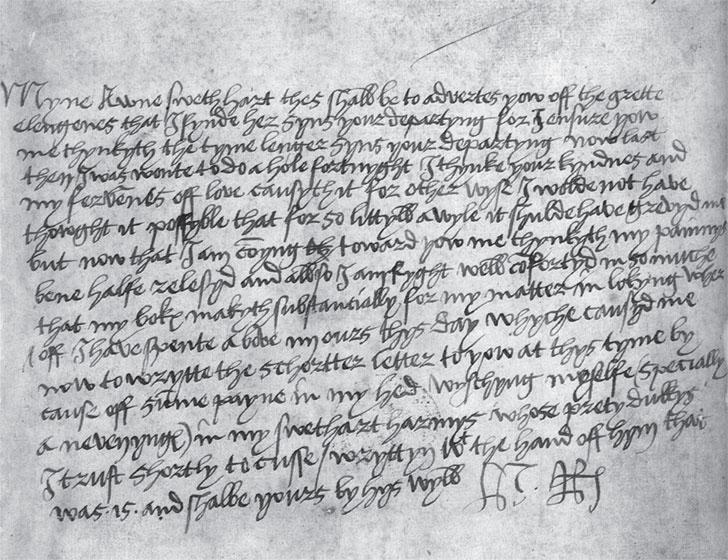 Myne awne swethhart thes shall be to advertes yow off the grette
elengenes that I fynde her syns your departyng for I ensure yow
me thynkyth the tyme lenger syns your departyng now last
then I was wonte to do a hole fortnyght I thynke your kyndnes and
my fervēnes off love causyth it for other wyse I wolde not have
thowght it possyble that for so littyll a wyle it shulde have grevyd me
but now that I am cōyng toward yow me thynkyth my painnys
bene halfe relesyd and allso I am ryght well cōfortyd in so muche
that my boke makyth substancially for my matter in lokyng wher
off I have spente a bove iiii ours thys day whyche causyd me
now to wrytte the schortter letter to yow at thys tyme by
cause off sume payne in my hed wyschyng my selfe (specially
a nevenyng) in my swethart harmys whose prety dukkys
I trust shortly to cusse / wryttyn wt the hand off hym that
was .is. and shalbe yours by hys wyll H. Rx